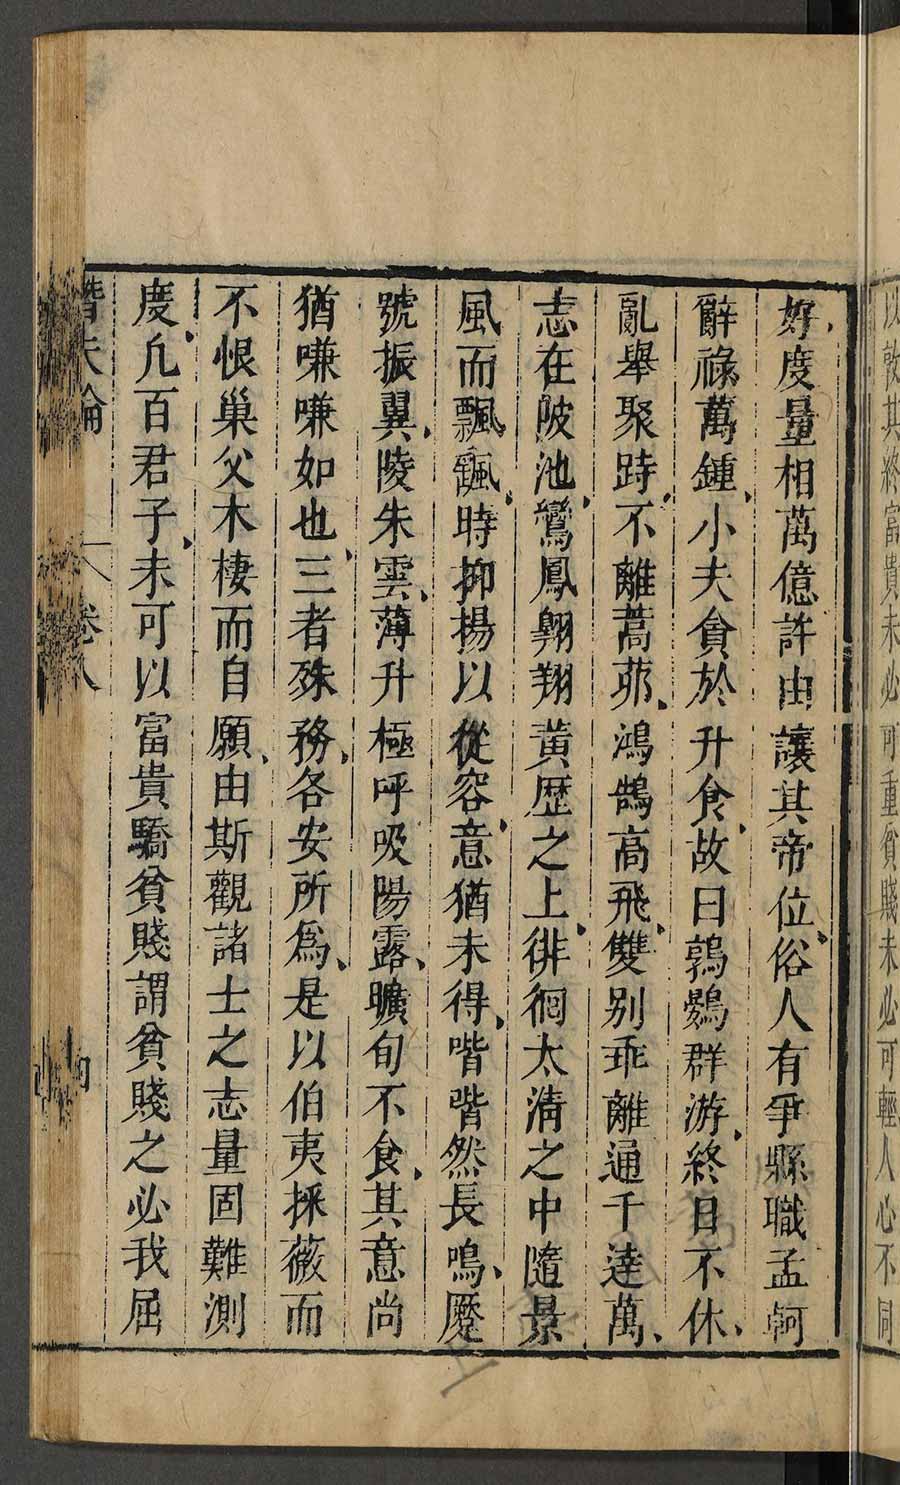 以敦其終富貴未必可重貧賤未必可輕人心不同
好度量相萬億許由讓其帝位俗人有爭縣職孟軻
辭祿萬鍾小夫貪於升食故曰鶉鷃群游終日不休
亂舉聚跱不離蒿茆鴻鵠高飛雙别乖離通千達萬
志在陂池鸞鳳翱翔黄歷之上徘徊太清之中隨景
風而飄飖時抑揚以從容意猶未得喈喈然長鳴蹷
號振翼陵朱雲薄升極呼吸陽露曠旬不食其意尚
猶嗛嗛如也三者殊務各安所為是以伯夷採薇而
不恨巢父木棲而自願由斯觀諸士之志量固難測
度凡百君子未可以富貴驕貧賤謂貧賤之必我屈
潛夫論 卷八 四